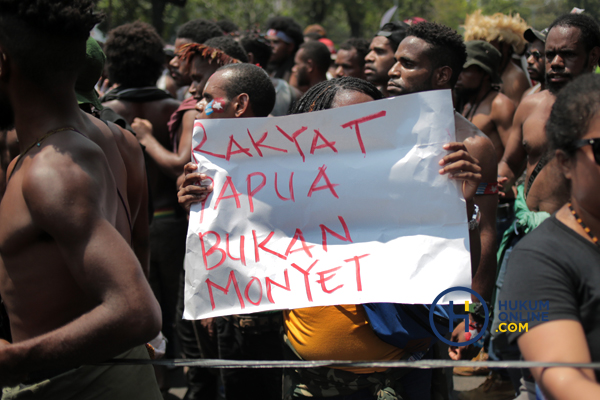 RAKYAT
PAPUA
BUKAN
MONYET
HUKUM
ONLINE
.COM